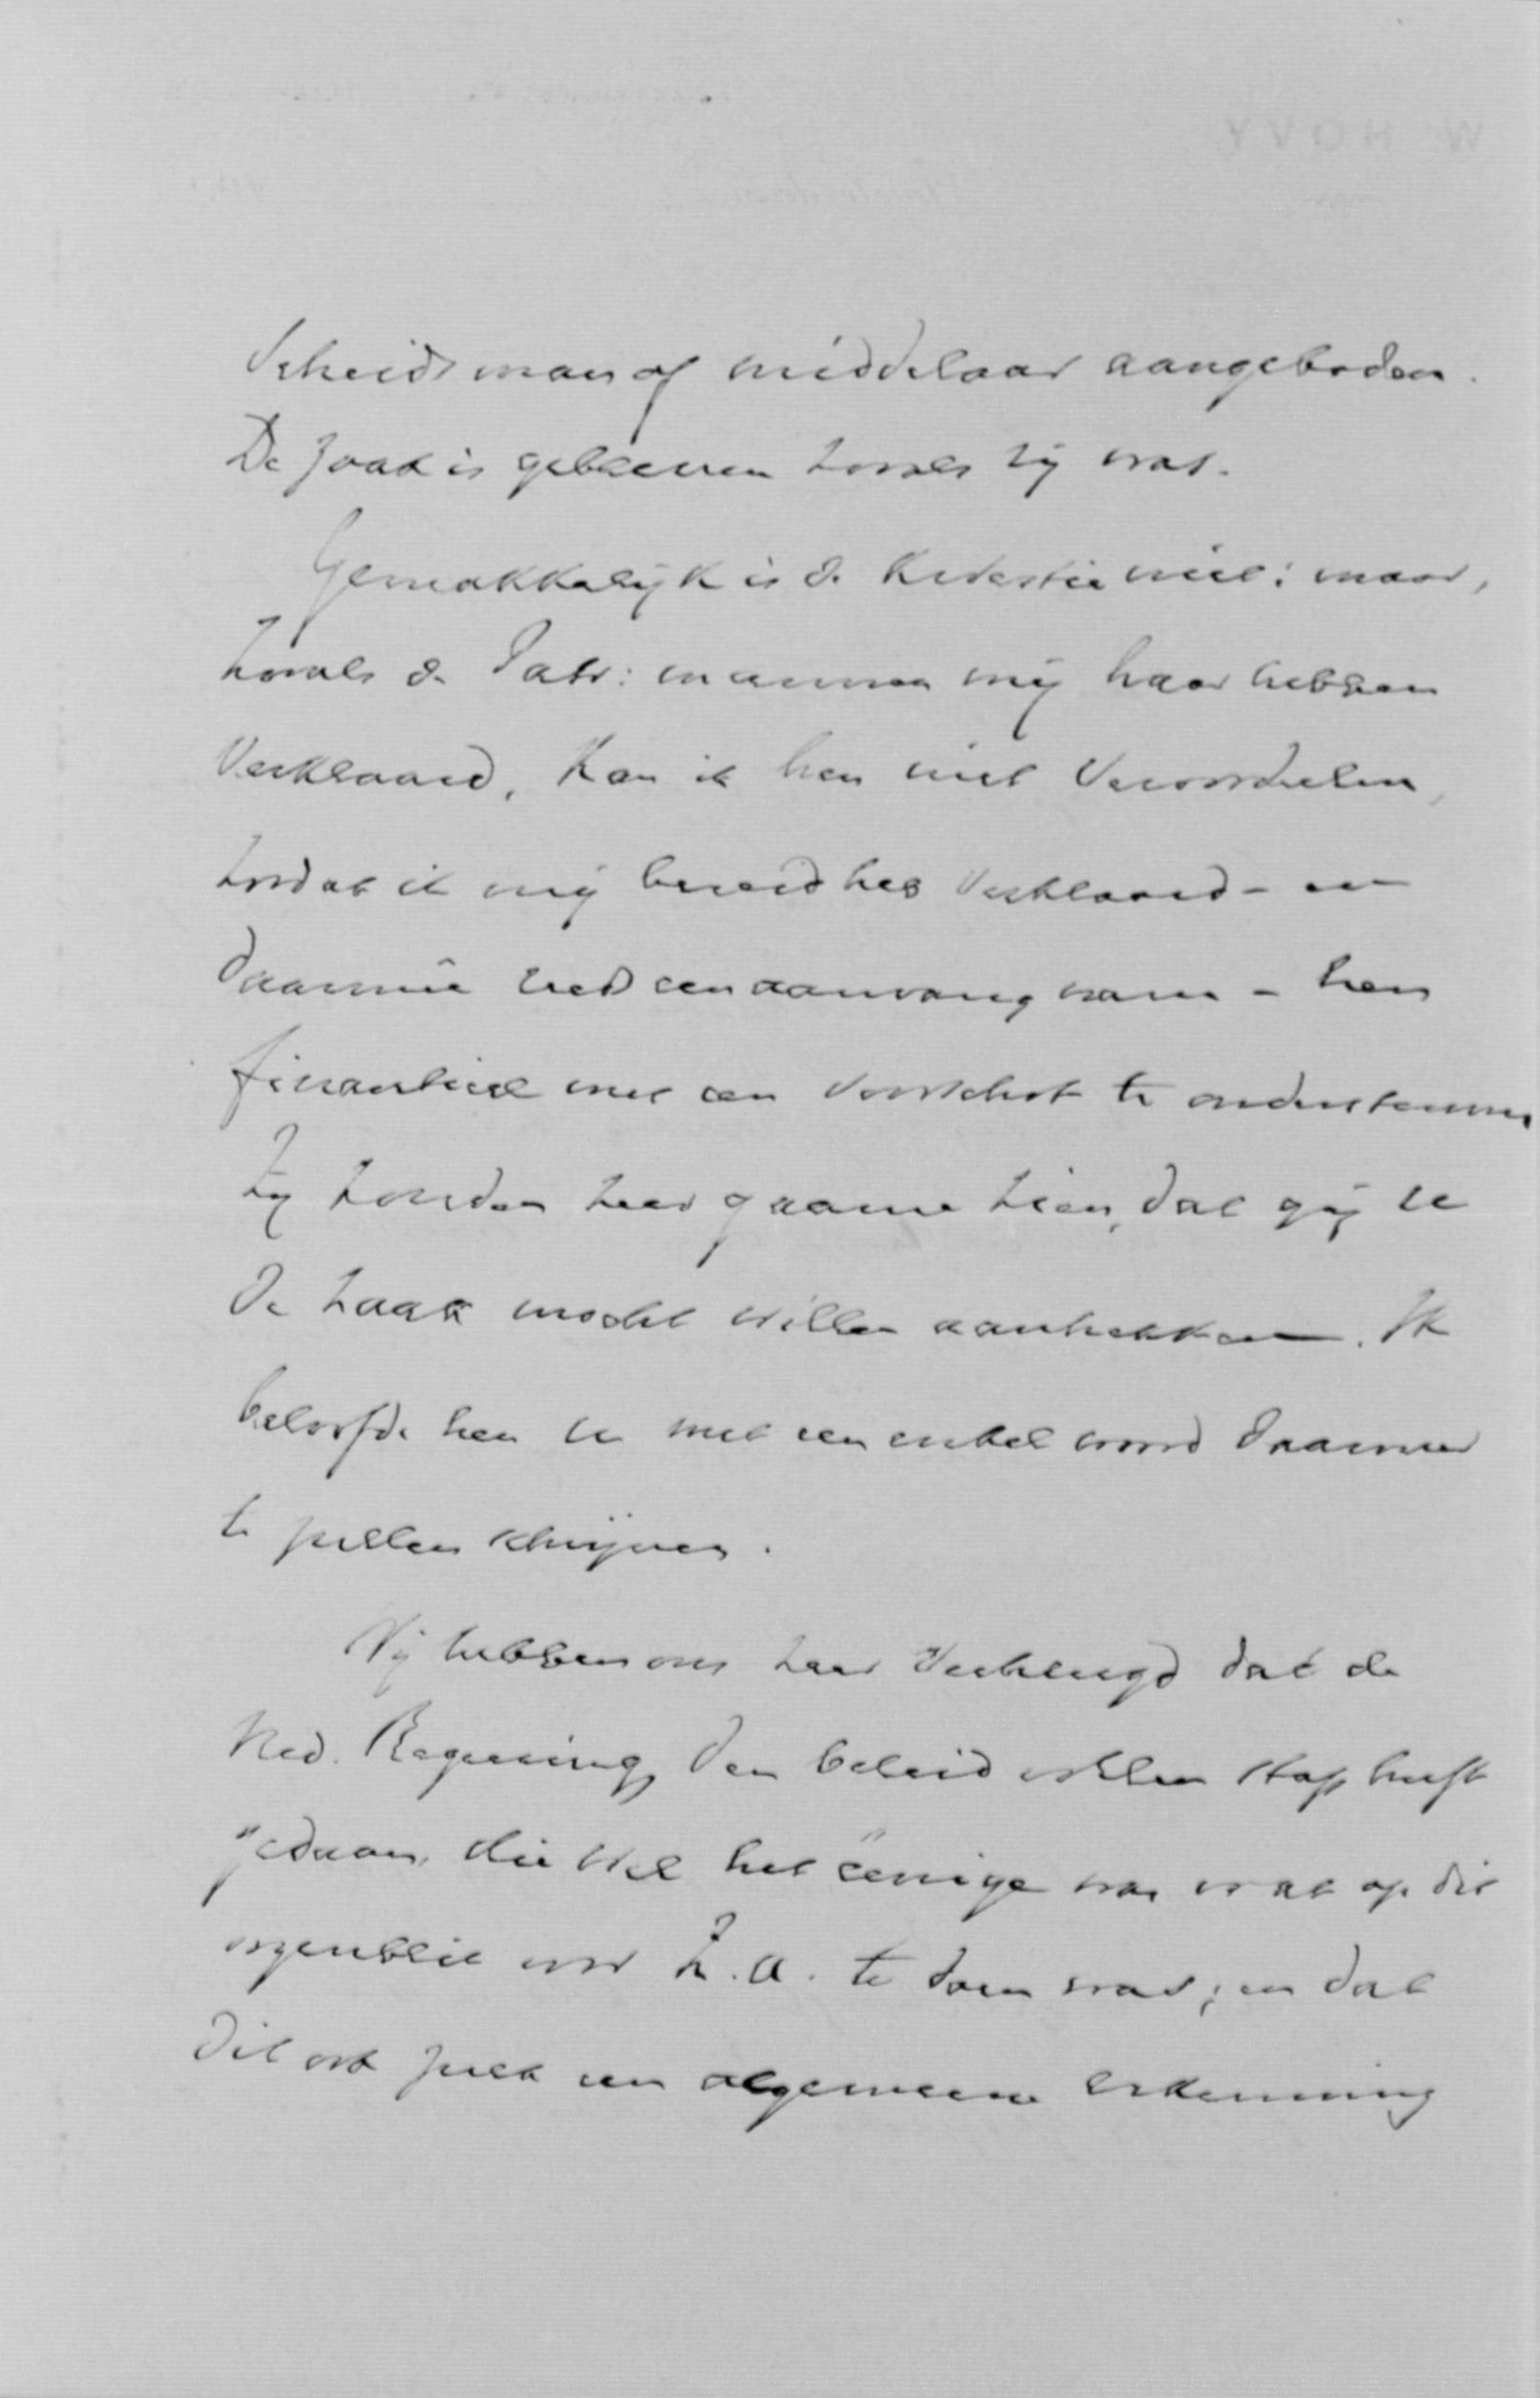 Scheidsman of middelaar aangeboden.
De zaak is gebleven zooals zij was.
Gemakkelijk is de kwestie niet: maar,
zooals de Patr: mannen mij haar hebben
verklaard, kan ik hen niet veroordeelen,
zoodat ik mij bereid heb verklaard - en
daarmêe reeds een aanvang nam - hen
financieel met een voorschot te ondersteunen
Zij zouden zeer gaarne zien, dat gij U
de zaak mocht willen aantrekken. Ik
beloofde hen U met een enkel woord daarover
te zullen schrijven.
Wij hebben ons zeer verheugd dat de
Ned. Regeering den beleidvollen stap heeft
gedaan, die wel het éénige was wat op dit
oogenblik voor Z.A. te doen was; en dat
dit ook zulk een algemeene erkenning